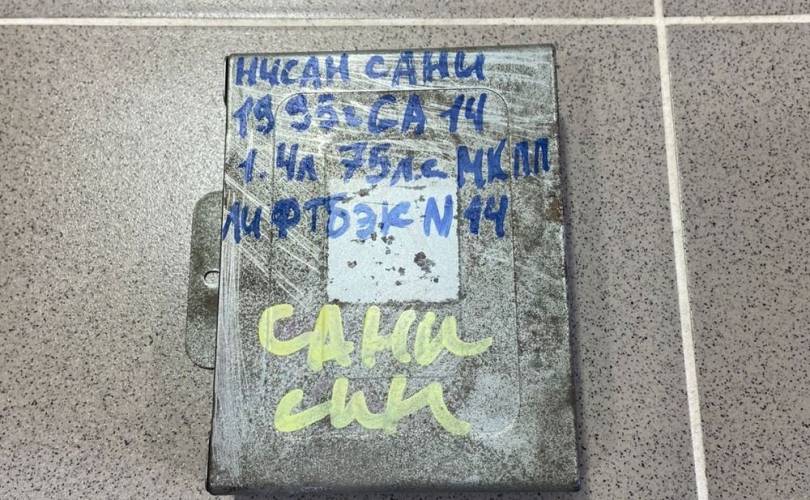 НИСАН САНИ
1995г GA 14
1.4л 75л.с МКПП
ЛИФТБЭК N14
САНИ
син